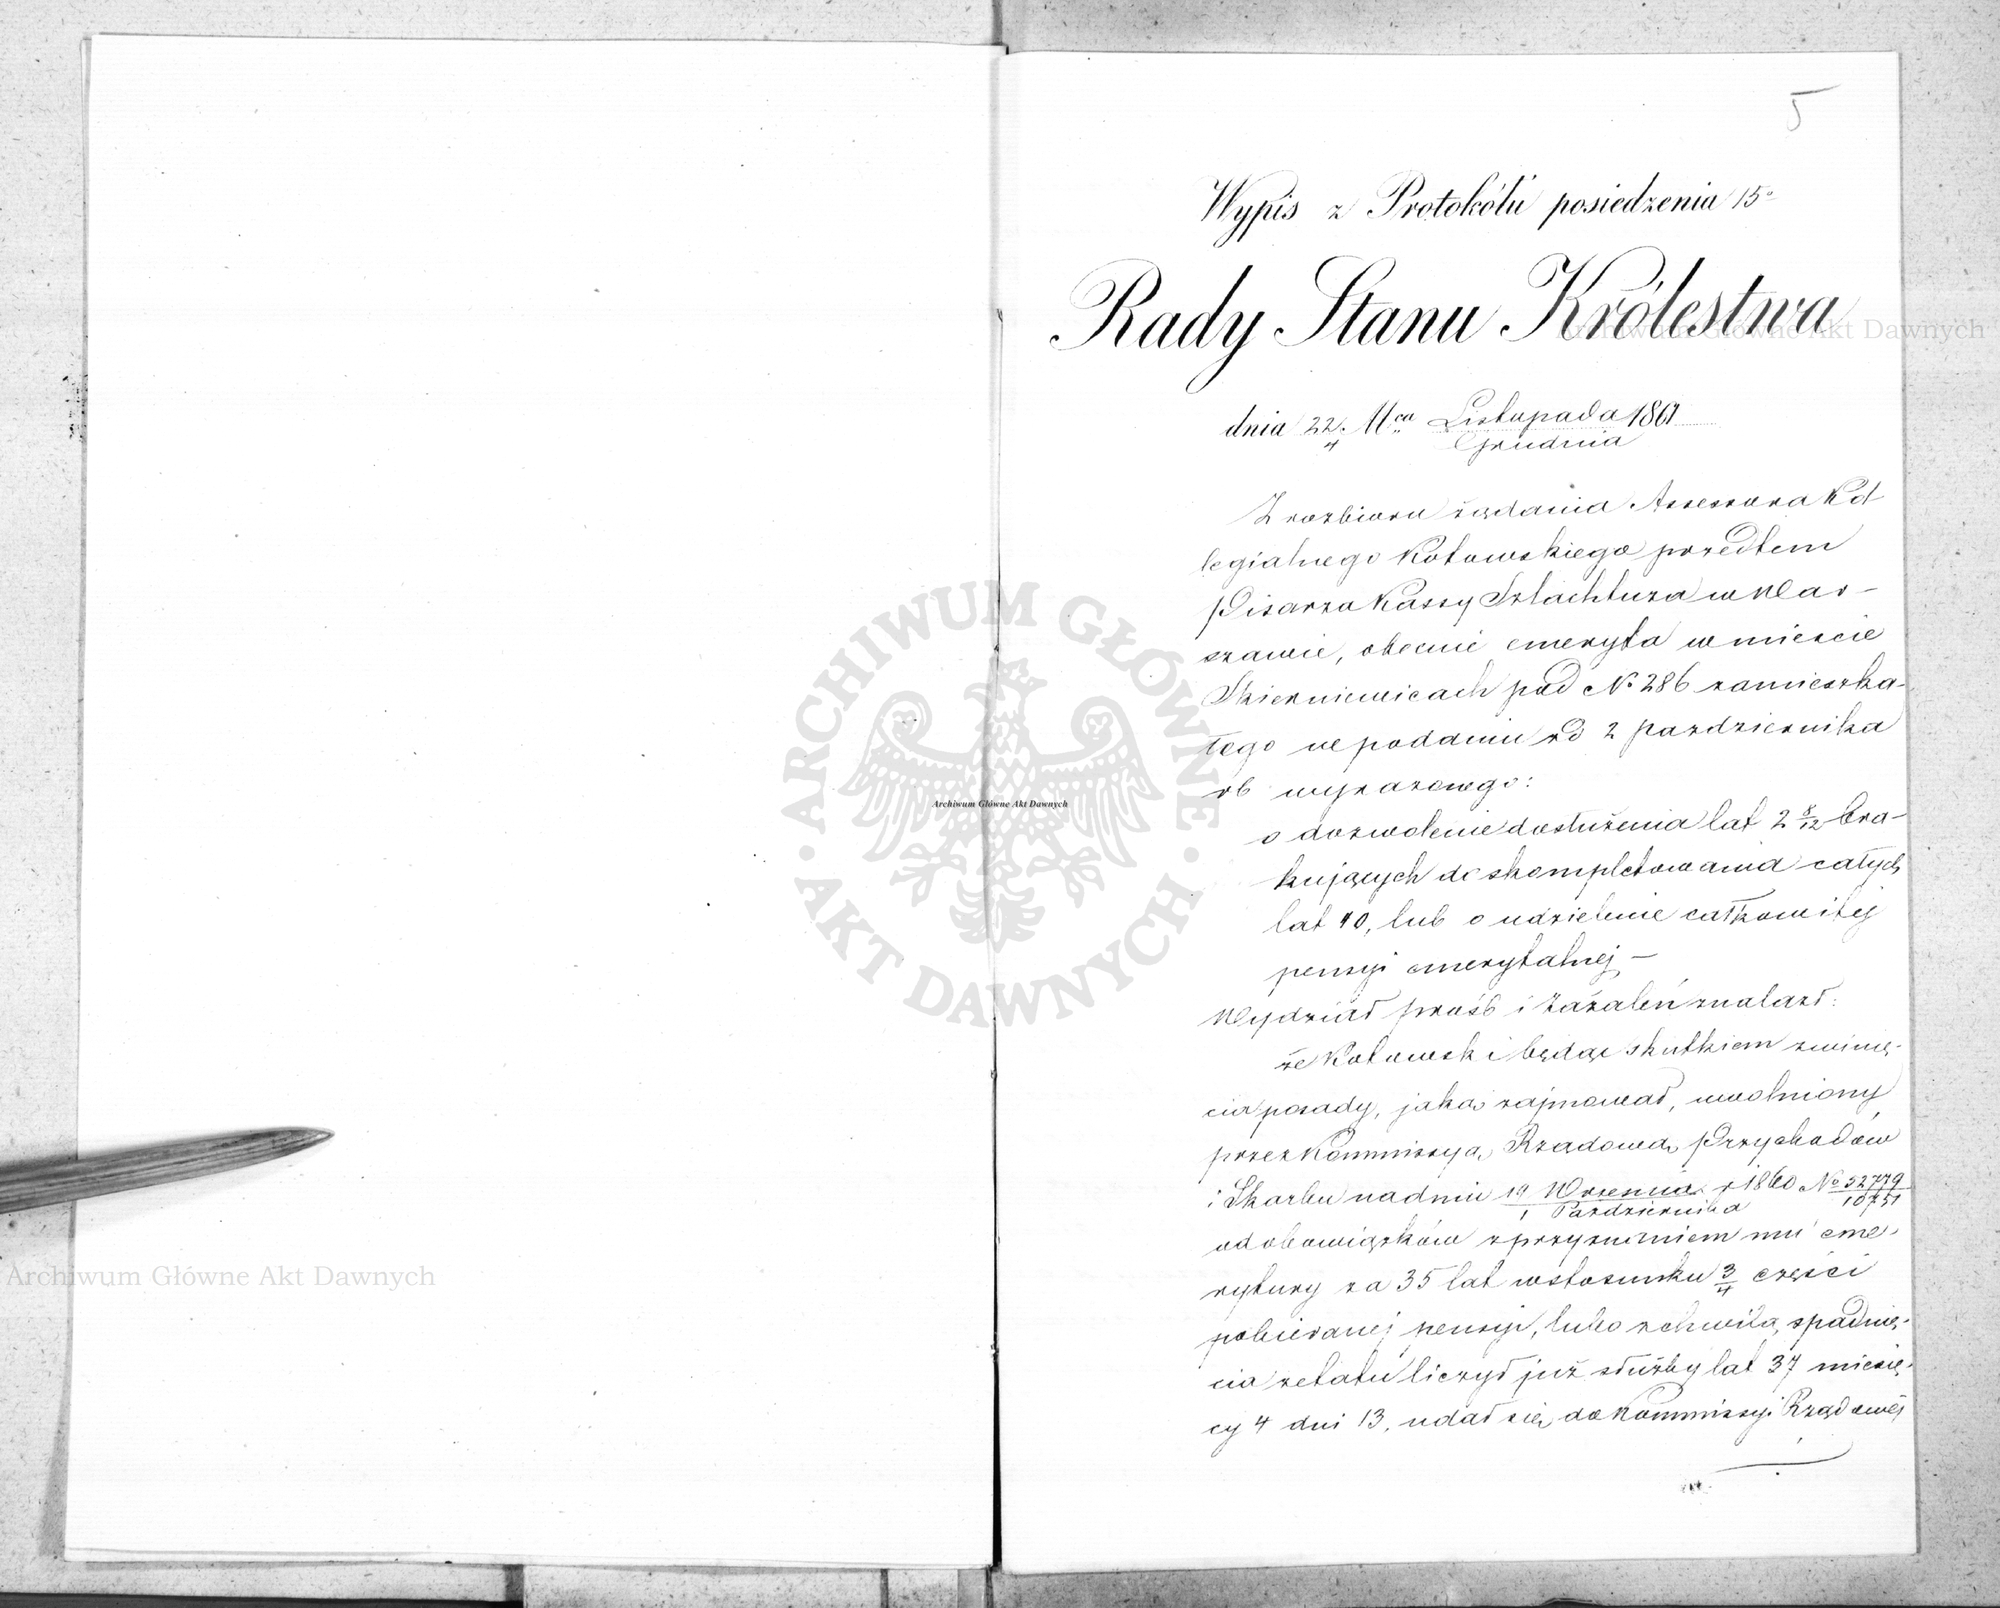 5
Wypis z Protokółu posiedzenia 15º
Rady Stanu Królestwa
Archiwum Główne Akt Dawnych
dnia 22/4 Mca Listopada/Grudnia 1861
Z rozbioru żądania Assessora Kol
legialnego Kotowskiego przedtem
Pisarza Kassy Szlachtuza w War-
szawie, obecnie emeryta w mieście
Skierniewicach pod No 286 zamieszka-
łego w podaniu z d 2 pazdziernika
rb wyrażonego:
o dozwolenie dosłużenia lat 2 8/12 bra-
kujących do skompletowania całych
lat 40, lub o udzielenie całkowitej
pensyi emerytalnej –
Wydział próśb i Zażaleń znalazł:
że Kotowski będąc skutkiem zwinię-
cia posady, jaką zajmował, uwolniony
przez Kommissyą Rządową Przychodów
i Skarbu na dniu 19/1 Września/Pazdziernika r 1860 No 52779/10751
od obowiązków z przyznaniem mu eme-
rytury za 35 lat w stosunku 3/4 części
pobieranej pensyi, lubo z chwilą spadnię-
cia z etatu liczył już służby lat 37 miesię-
cy 4 dni 13, udał się do Kommissyi Rządowéj
ARCHIWUM GŁÓWNE AKT DAWNYCH
Archiwum Główne Akt Dawnych
Archiwum Główne Akt Dawnych